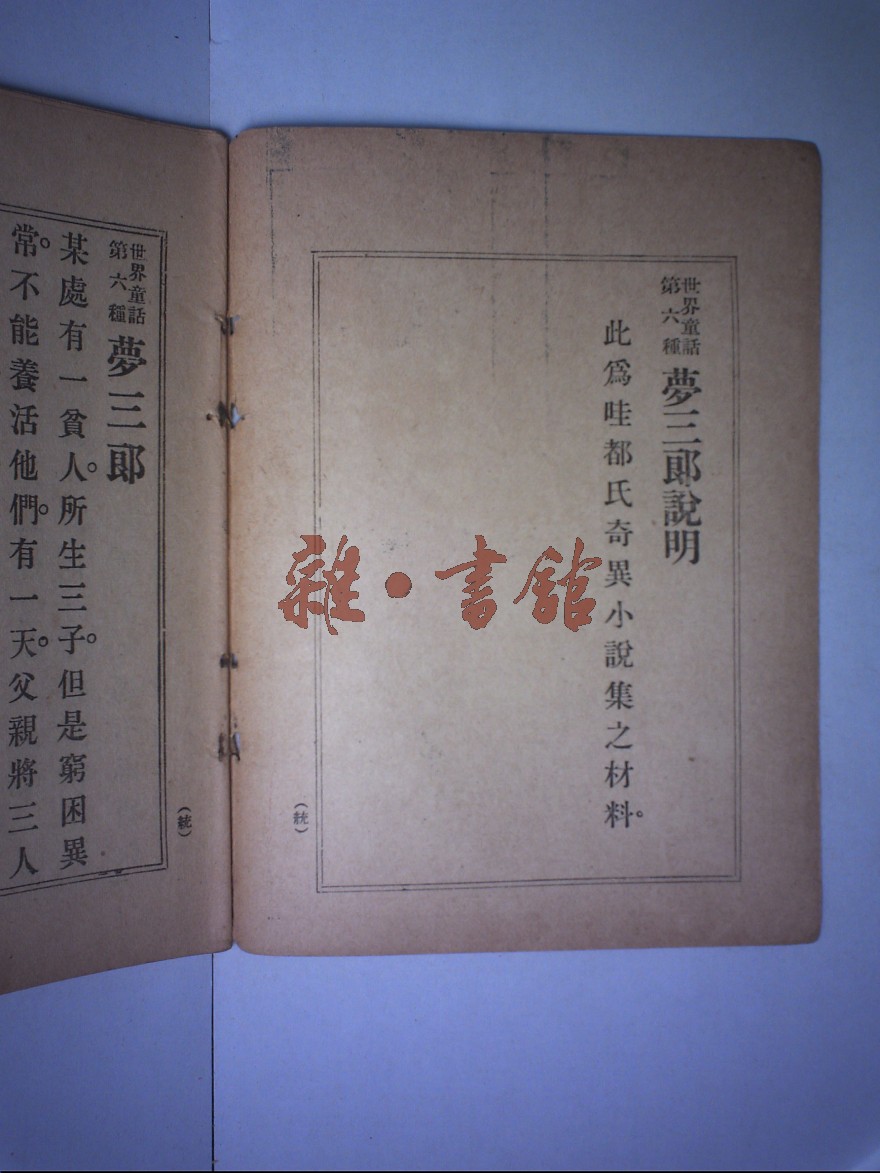 世界童話
第六種
夢三郎說明
此爲哇都氏奇異小說集之材料。
(統)
世界童話
第六種
夢三郎
某處有一貧人。所生三子。但是窮困異
常。不能養活他們。有一天。父親將三人
(統)
雜·書館